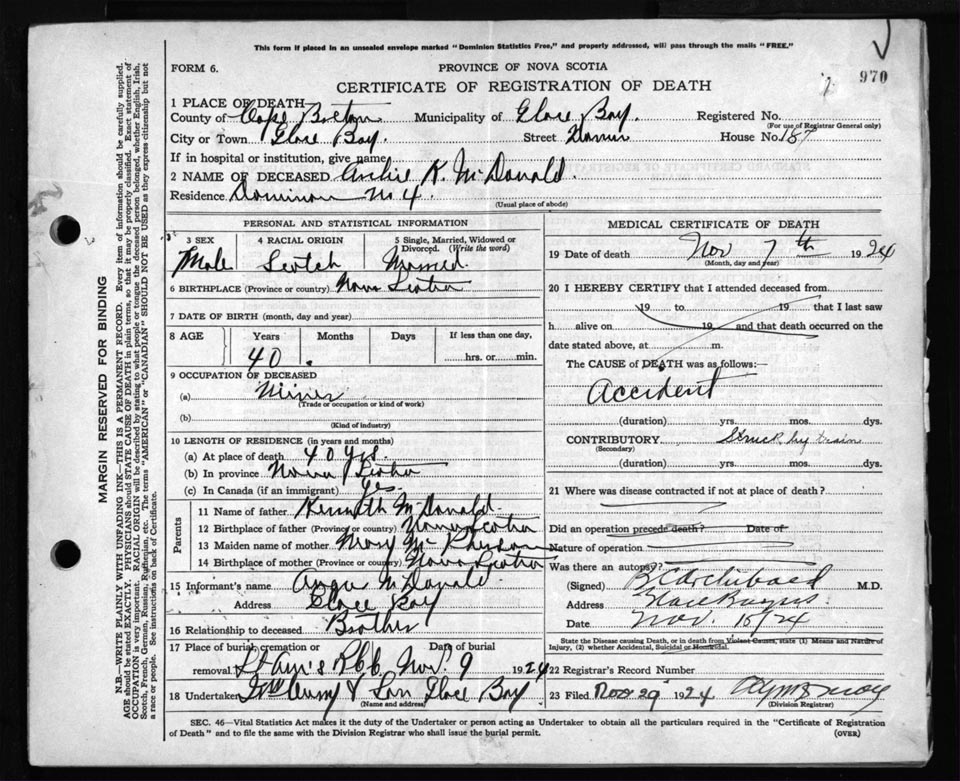 This form if placed in an unsealed envelope marked "Dominion Statistics Free," and properly addressed, will pass through the mails "FREE."
FORM 6.
PROVINCE OF NOVA SCOTIA
970
CERTIFICATE OF REGISTRATION OF DEATH
1 PLACE OF DEATH
County of Cape Breton Municipality of Glace Bay. Registered No.
(For use of Registrar General only)
City or Town Glace Bay. Street House No. 187
If in hospital or institution, give name
2 NAME OF DECEASED Archie K. McDonald.
Residence Dominion No 4.
(Usual place of abode)
PERSONAL AND STATISTICAL INFORMATION
3 SEX 4 RACIAL ORIGIN 5 Single, Married, Widowed or Divorced. (Write the word)
Male Scotch Married
6 BIRTHPLACE (Province or country) Nova Scotia
7 DATE OF BIRTH (month, day and year)
8 AGE Years Months Days If less than one day,
40. hrs. or min.
9 OCCUPATION OF DECEASED
(a) Miner
(Trade or occupation or kind of work)
(b)
(Kind of industry)
10 LENGTH OF RESIDENCE (in years and months)
(a) At place of death 40 yrs.
(b) In province Nova Scotia
(c) In Canada (if an immigrant) yes.
Parents
11 Name of father Kenneth McDonald.
12 Birthplace of father (Province or country) Nova Scotia
13 Maiden name of mother Mary McPherson
14 Birthplace of mother (Province or country) Nova Scotia
15 Informant's name Angus McDonald.
Address Glace Bay
16 Relationship to deceased Brother
17 Place of burial, cremation or removal Date of burial
St Ann's Nov. 9 1924
18 Undertaker & Son Glace Bay
(Name and address)
MEDICAL CERTIFICATE OF DEATH
19 Date of death Nov 7th 1924
(Month, day and year)
20 I HEREBY CERTIFY that I attended deceased from
19 to 19 that I last saw
h alive on 19 and that death occurred on
date stated above, at m.
The CAUSE of DEATH was as follows:—
Accident
(duration) yrs. mos. dys.
CONTRIBUTORY Struck by train
(Secondary)
(duration) yrs. mos. dys.
21 Where was disease contracted if not at place of death?
Did an operation precede death? Date of
Nature of operation
Was there an autopsy?
(Signed) Archibald M.D.
Address Glace Bay NS
Date Nov. 15/24
State the Disease causing Death, or in death from Violent Causes, state (1) Means and Nature of Injury, (2) whether Accidental, Suicidal or Homicidal.
22 Registrar's Record Number
23 Filed Nov 29 1924
(Division Registrar)
SEC. 46—Vital Statistics Act makes it the duty of the Undertaker or person acting as Undertaker to obtain all the particulars required in the "Certificate of Registration of Death" and to file the same with the Division Registrar who shall issue the burial permit.
(OVER)
MARGIN RESERVED FOR BINDING
N.B.—WRITE PLAINLY WITH UNFADING INK—THIS IS A PERMANENT RECORD. Every item of information should be carefully supplied. AGE should be stated EXACTLY. PHYSICIANS should STATE CAUSE OF DEATH in plain terms, so that it may be properly classified. Exact statement of OCCUPATION is very important. RACIAL ORIGIN will be described by stating to what people or tongue the deceased person belonged, whether English, Irish, Scotch, French, German, Russian, Ruthenian, etc. The terms "AMERICAN" or "CANADIAN" SHOULD NOT BE USED as they express citizenship but not a race or people. See instructions on back of Certificate.